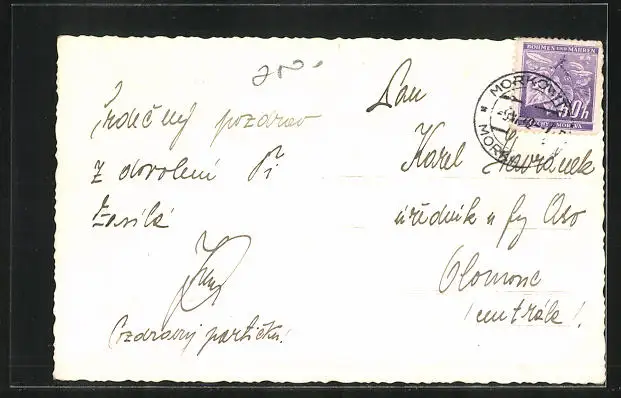 Srdečný pozdrav
z dovolení Ti
zasílá
Pozdravuj partičku!
Pan
Karel Navrátek
úředník u fy Aso
Olomouc
/centrála/.
BÖHMEN UND MÄHREN
60h
MORKOVICE